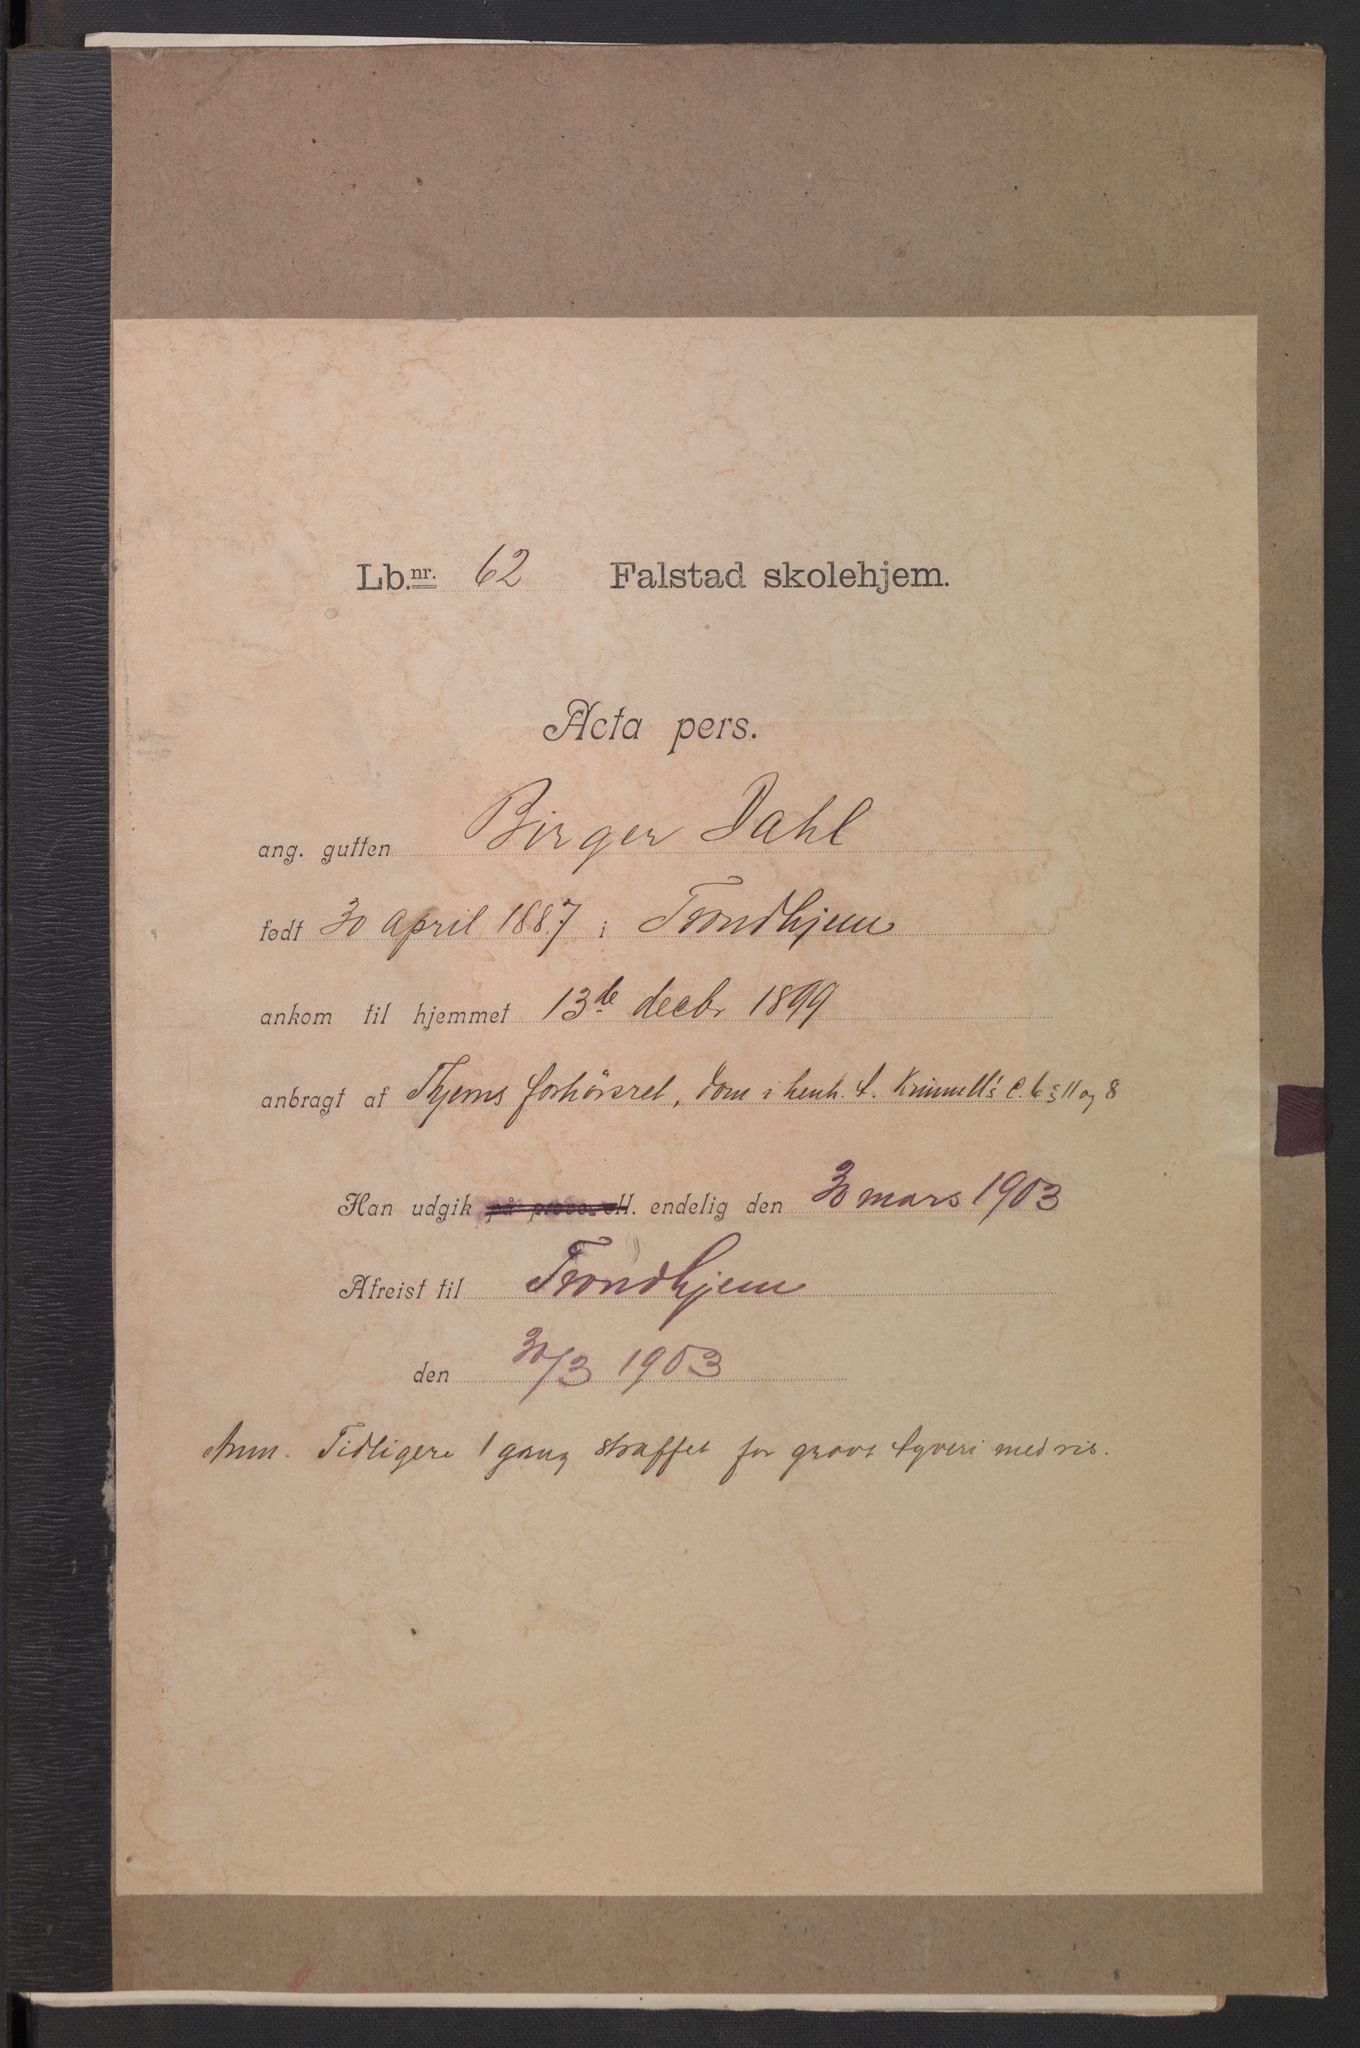 Lb.nr. 62 Falstad skolehjem.
Acta pers.
ang. gutten Birger Dahl
født 30 april 1887 i Trondhjem
ankom til hjemmet 13de decbr 1899
anbragt af Thjems forhörsret, dom i henh. t. Kriminall's C. 6 § 11 og 8
Han udgik på prøve ell. endelig den 30 mars 1903
Afreist til Trondhjem
den 30/3 1903
Anm. Tidligere 1 gang straffet for grovt tyveri med ris.